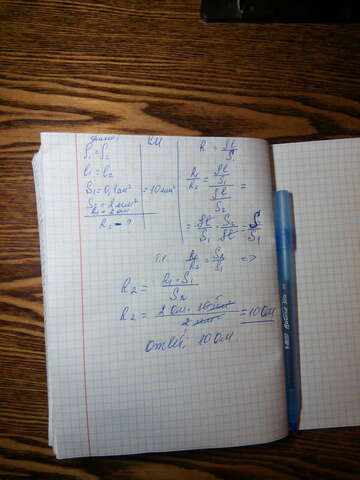 дано:
СИ
ρ₁=ρ₂
l₁=l₂
S₁=0,1см² =10мм²
S₂=2мм²
R₁=2Ом
R₂-?
R=ρl/S
R₁/R₂=(ρl/S₁)/(ρl/S₂)=
=ρl/S₁·S₂/ρl=S₂/S₁
т.к. R₁/R₂=S₂/S₁ =>
R₂=R₁·S₁/S₂
R₂=2 Ом·10мм²/2 мм²=10 Ом
ответ: 10 Ом.